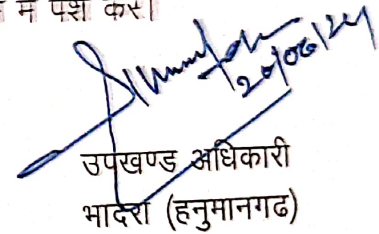 में पेश करें।
20/06/24
उपखण्ड अधिकारी
भादरा (हनुमानगढ)